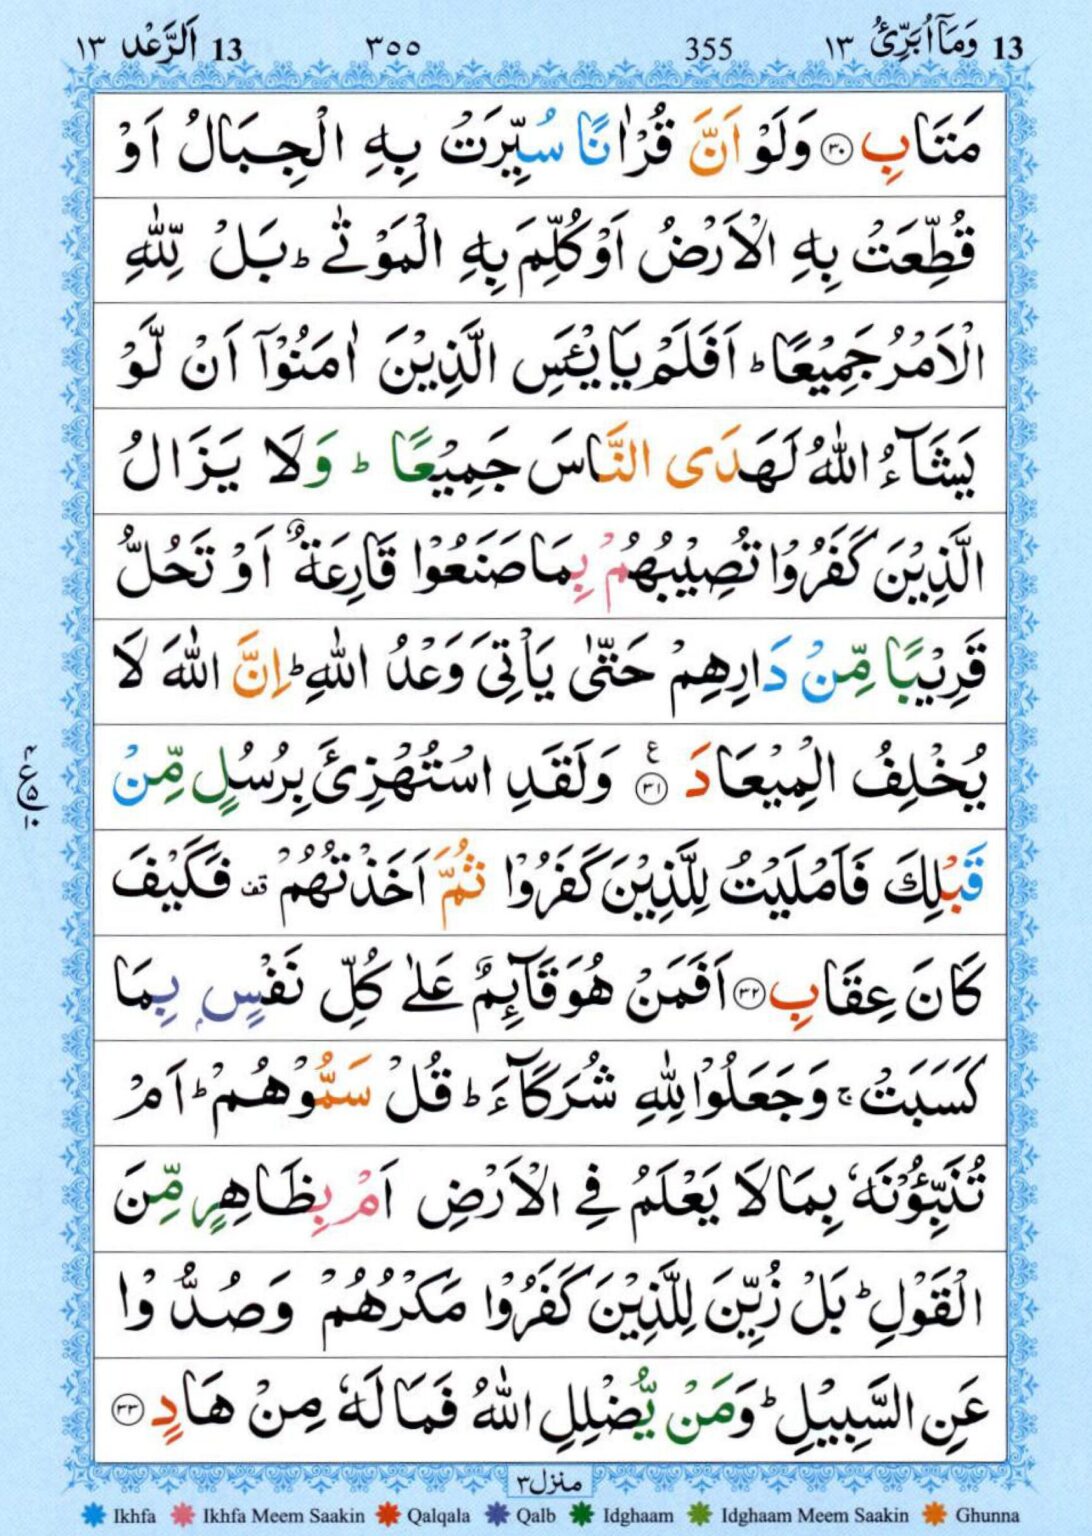 13 وَمَآ اُبَرِّئُ ١٣ 355 ٣٥٥ 13 اَلرَّعْد ١٣
مَتَابِ ﴿۳۰﴾ وَلَوْ اَنَّ قُرْاٰنًا سُيِّرَتْ بِهِ الْجِبَالُ اَوْ
قُطِّعَتْ بِهِ الْاَرْضُ اَوْ كُلِّمَ بِهِ الْمَوْتٰى ؕ بَلْ لِّلّٰهِ
الْاَمْرُ جَمِيْعًا ؕ اَفَلَمْ يَا۟يْـَٔسِ الَّذِيْنَ اٰمَنُوْٓا اَنْ لَّوْ
يَشَآءُ اللّٰهُ لَهَدَى النَّاسَ جَمِيْعًا ؕ وَلَا يَزَالُ
الَّذِيْنَ كَفَرُوْا تُصِيْبُهُمْ بِمَا صَنَعُوْا قَارِعَةٌ اَوْ تَحُلُّ
قَرِيْبًا مِّنْ دَارِهِمْ حَتّٰى يَاْتِىَ وَعْدُ اللّٰهِ ؕ اِنَّ اللّٰهَ لَا
يُخْلِفُ الْمِيْعَادَ ﴿۳۱﴾ ع وَلَقَدِ اسْتُهْزِئَ بِرُسُلٍ مِّنْ
قَبْلِكَ فَاَمْلَيْتُ لِلَّذِيْنَ كَفَرُوْا ثُمَّ اَخَذْتُهُمْ قف فَكَيْفَ
كَانَ عِقَابِ ﴿۳۲﴾ اَفَمَنْ هُوَ قَآئِمٌ عَلٰى كُلِّ نَفْسٍۭ بِمَا
كَسَبَتْ ۚ وَجَعَلُوْا لِلّٰهِ شُرَكَآءَ ؕ قُلْ سَمُّوْهُمْ ؕ اَمْ
تُنَبِّـُٔوْنَهٗ بِمَا لَا يَعْلَمُ فِى الْاَرْضِ اَمْ بِظَاهِرٍ مِّنَ
الْقَوْلِ ؕ بَلْ زُيِّنَ لِلَّذِيْنَ كَفَرُوْا مَكْرُهُمْ وَصُدُّوْا
عَنِ السَّبِيْلِ ؕ وَمَنْ يُّضْلِلِ اللّٰهُ فَمَا لَهٗ مِنْ هَادٍ ﴿۳۳﴾
منزل ۳
Ikhfa Ikhfa Meem Saakin Qalqala Qalb Idghaam Idghaam Meem Saakin Ghunna